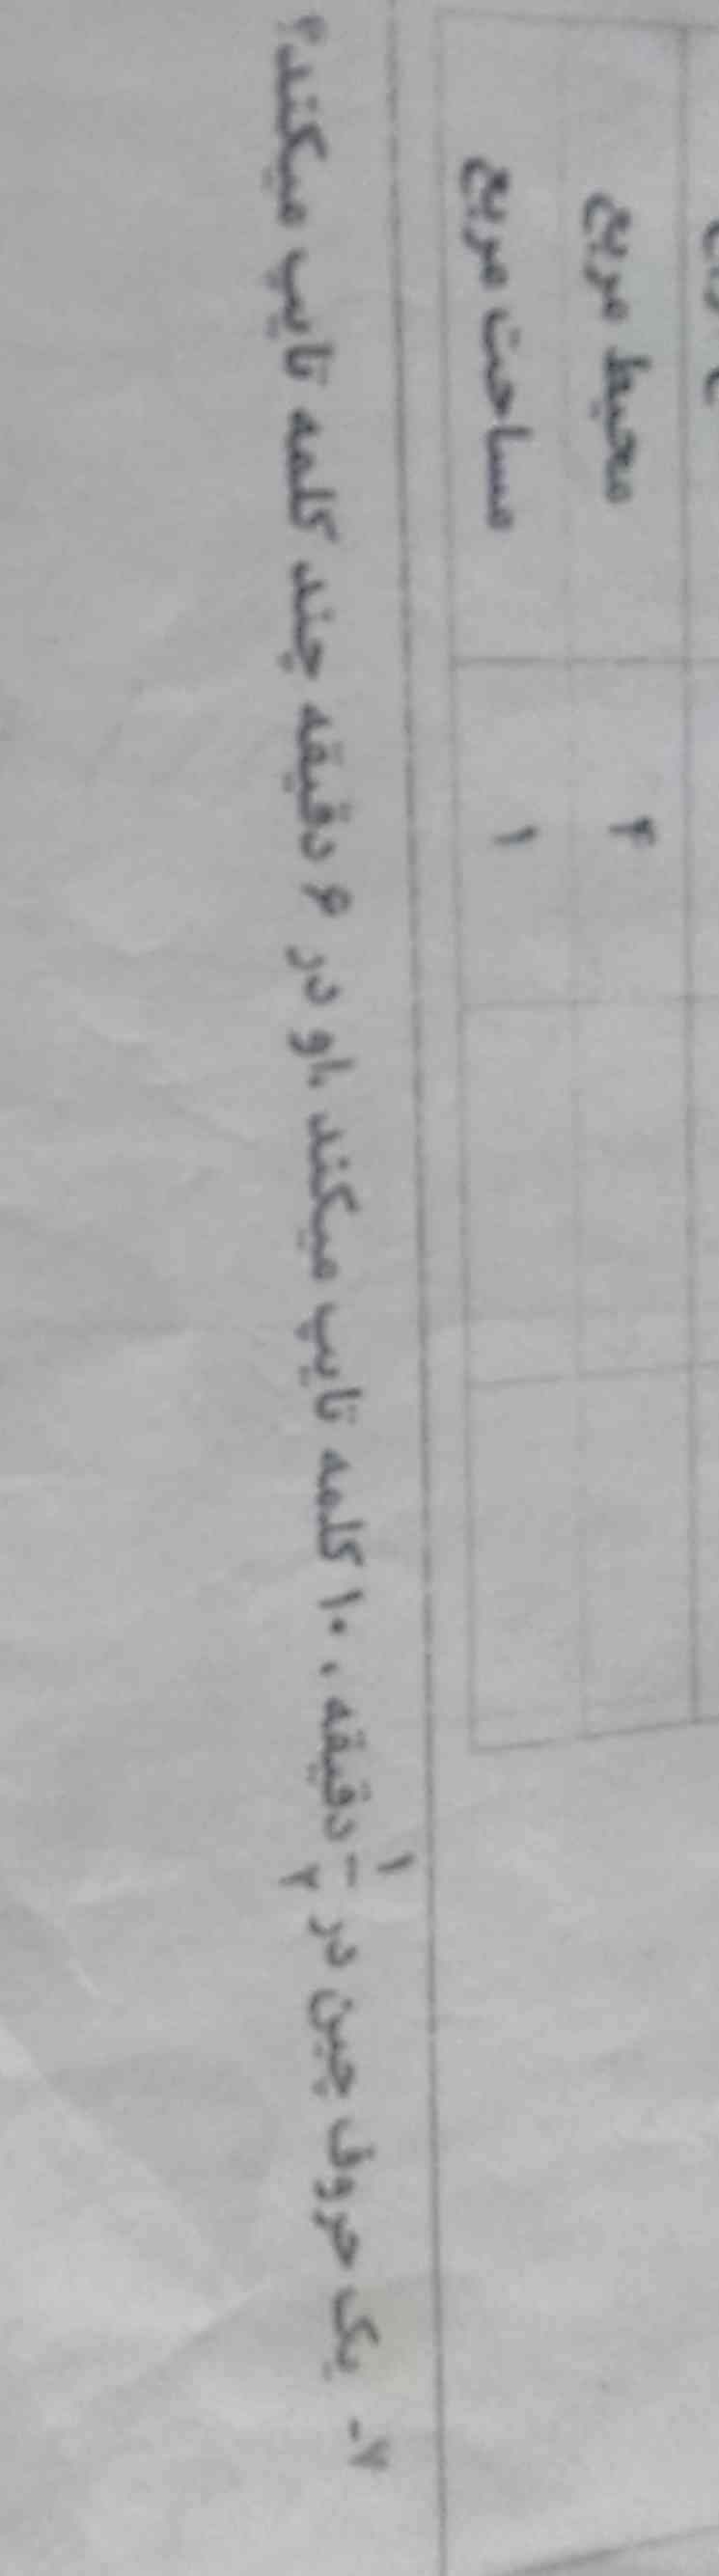 محیط مربع ۴
مساحت مربع ۱
۷- یک حروف چین در ۱/۲ دقیقه، ۱۰ کلمه تایپ میکند، او در ۶ دقیقه چند کلمه تایپ میکند؟